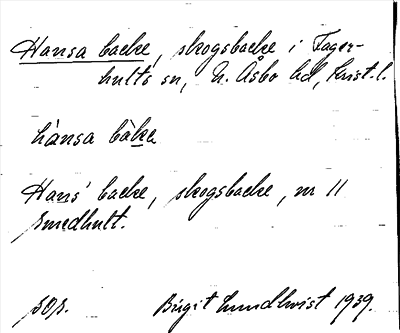 Hansa backe, skogsbacke i Fager-
hults sn, N. Åsbo hd, Krist. l.
hànsa bàka
Hans' backe, skogsbacke, nr 11
Smedhult.
Birgit Lundkvist 1939.